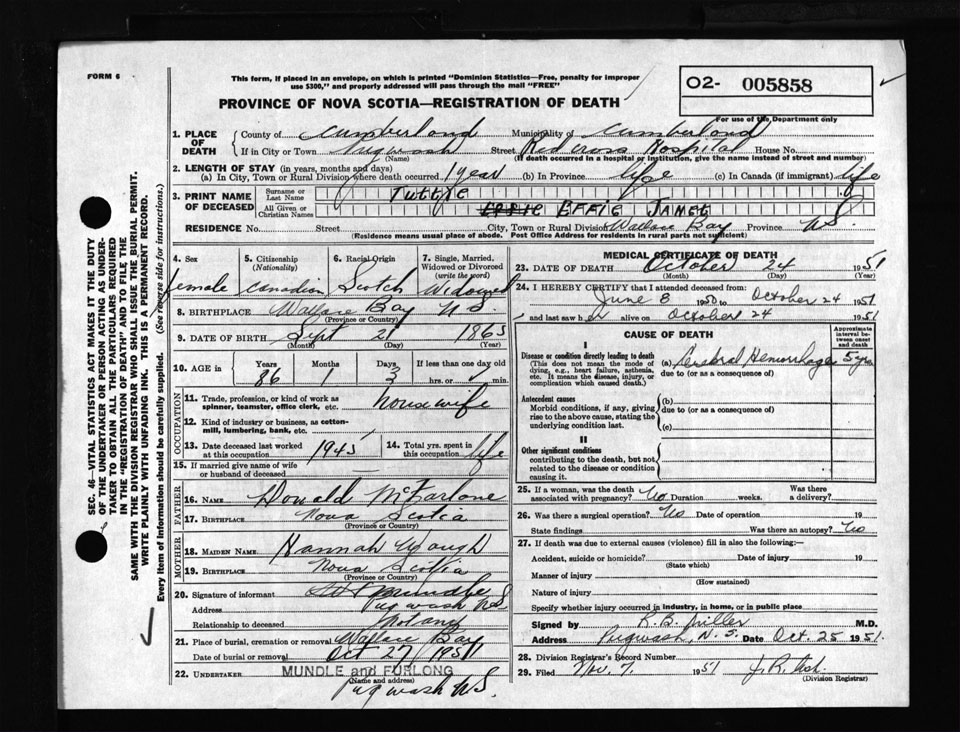 FORM 6
This form, if placed in an envelope, on which is printed "Dominion Statistics—Free, penalty for improper
use $300," and properly addressed will pass through the mail "FREE"
O2- 005858
PROVINCE OF NOVA SCOTIA—REGISTRATION OF DEATH
For use of the Department only
1. PLACE OF DEATH
County of Cumberland Municipality of Cumberland
If in City or Town Pugwash Street Red Cross Hospital House No.
(Name) (If death occurred in a hospital or institution, give the name instead of street and number)
2. LENGTH OF STAY (in years, months and days)
(a) In City, Town or Rural Division where death occurred. 1 year (b) In Province life (c) In Canada (if immigrant) life
3. PRINT NAME OF DECEASED
Surname or Last Name Tuttle
All Given or Christian Names Effie Janet
RESIDENCE No. Street City, Town or Rural Division Wallace Bay Province N S.
(Residence means usual place of abode. Post Office Address for residents in rural parts not sufficient)
4. Sex female
5. Citizenship (Nationality) Canadian
6. Racial Origin Scotch
7. Single, Married, Widowed or Divorced (write the word) Widowed
8. BIRTHPLACE Wallace Bay N S.
(Province or Country)
9. DATE OF BIRTH Sept 21 1865
(Month) (Day) (Year)
10. AGE in Years Months Days If less than one day old
86 1 3 hrs. or min.
OCCUPATION
11. Trade, profession, or kind of work as spinner, teamster, office clerk, etc. housewife
12. Kind of industry or business, as cotton-mill, lumbering, bank, etc.
13. Date deceased last worked at this occupation 1945
14. Total yrs. spent in this occupation life
15. If married give name of wife or husband of deceased
FATHER
16. NAME Donald McFarlane
17. BIRTHPLACE Nova Scotia
(Province or Country)
MOTHER
18. MAIDEN NAME Hannah Waugh
19. BIRTHPLACE Nova Scotia
(Province or Country)
20. Signature of informant Mundle
Address Pugwash NS
Relationship to deceased
21. Place of burial, cremation or removal Wallace Bay
Date of burial or removal Oct 27 1951
22. UNDERTAKER MUNDLE and FURLONG
(Name and address)
Pugwash NS.
MEDICAL CERTIFICATE OF DEATH
23. DATE OF DEATH October 24 1951
(Month) (Day) (Year)
24. I HEREBY CERTIFY that I attended deceased from:
June 8 1950 to October 24 1951
and last saw her alive on October 24 1951
CAUSE OF DEATH
Approximate interval between onset and death
I
Disease or condition directly leading to death (a) Cerebral Hemorrhage 5 yrs
(This does not mean the mode of dying, e.g., heart failure, asthenia, etc. It means the disease, injury, or complication which caused death.)
due to (or as a consequence of)
Antecedent causes (b)
Morbid conditions, if any, giving rise to the above cause, stating the underlying condition last.
due to (or as a consequence of)
(c)
II
Other significant conditions
contributing to the death, but not related to the disease or condition causing it.
25. If a woman, was the death associated with pregnancy? No Duration weeks. Was there a delivery?
26. Was there a surgical operation? No Date of operation 19
State findings Was there an autopsy? No
27. If death was due to external causes (violence) fill in also the following:—
Accident, suicide or homicide? Date of injury 19
(State which)
Manner of injury
(How sustained)
Nature of injury
Specify whether injury occurred in industry, in home, or in public place
Signed by R. B. Miller M.D.
Address Pugwash, N. S. Date Oct. 25 1951.
28. Division Registrar's Record Number
29. Filed Nov. 7, 1951 J. R.
(Division Registrar)
SEC. 46—VITAL STATISTICS ACT MAKES IT THE DUTY
OF THE UNDERTAKER OR PERSON ACTING AS UNDER-
TAKER TO OBTAIN ALL THE PARTICULARS REQUIRED
IN THE "REGISTRATION OF DEATH" AND TO FILE THE
SAME WITH THE DIVISION REGISTRAR WHO SHALL ISSUE THE BURIAL PERMIT.
WRITE PLAINLY WITH UNFADING INK. THIS IS A PERMANENT RECORD.
Every item of Information should be carefully supplied. (See reverse side for instructions.)